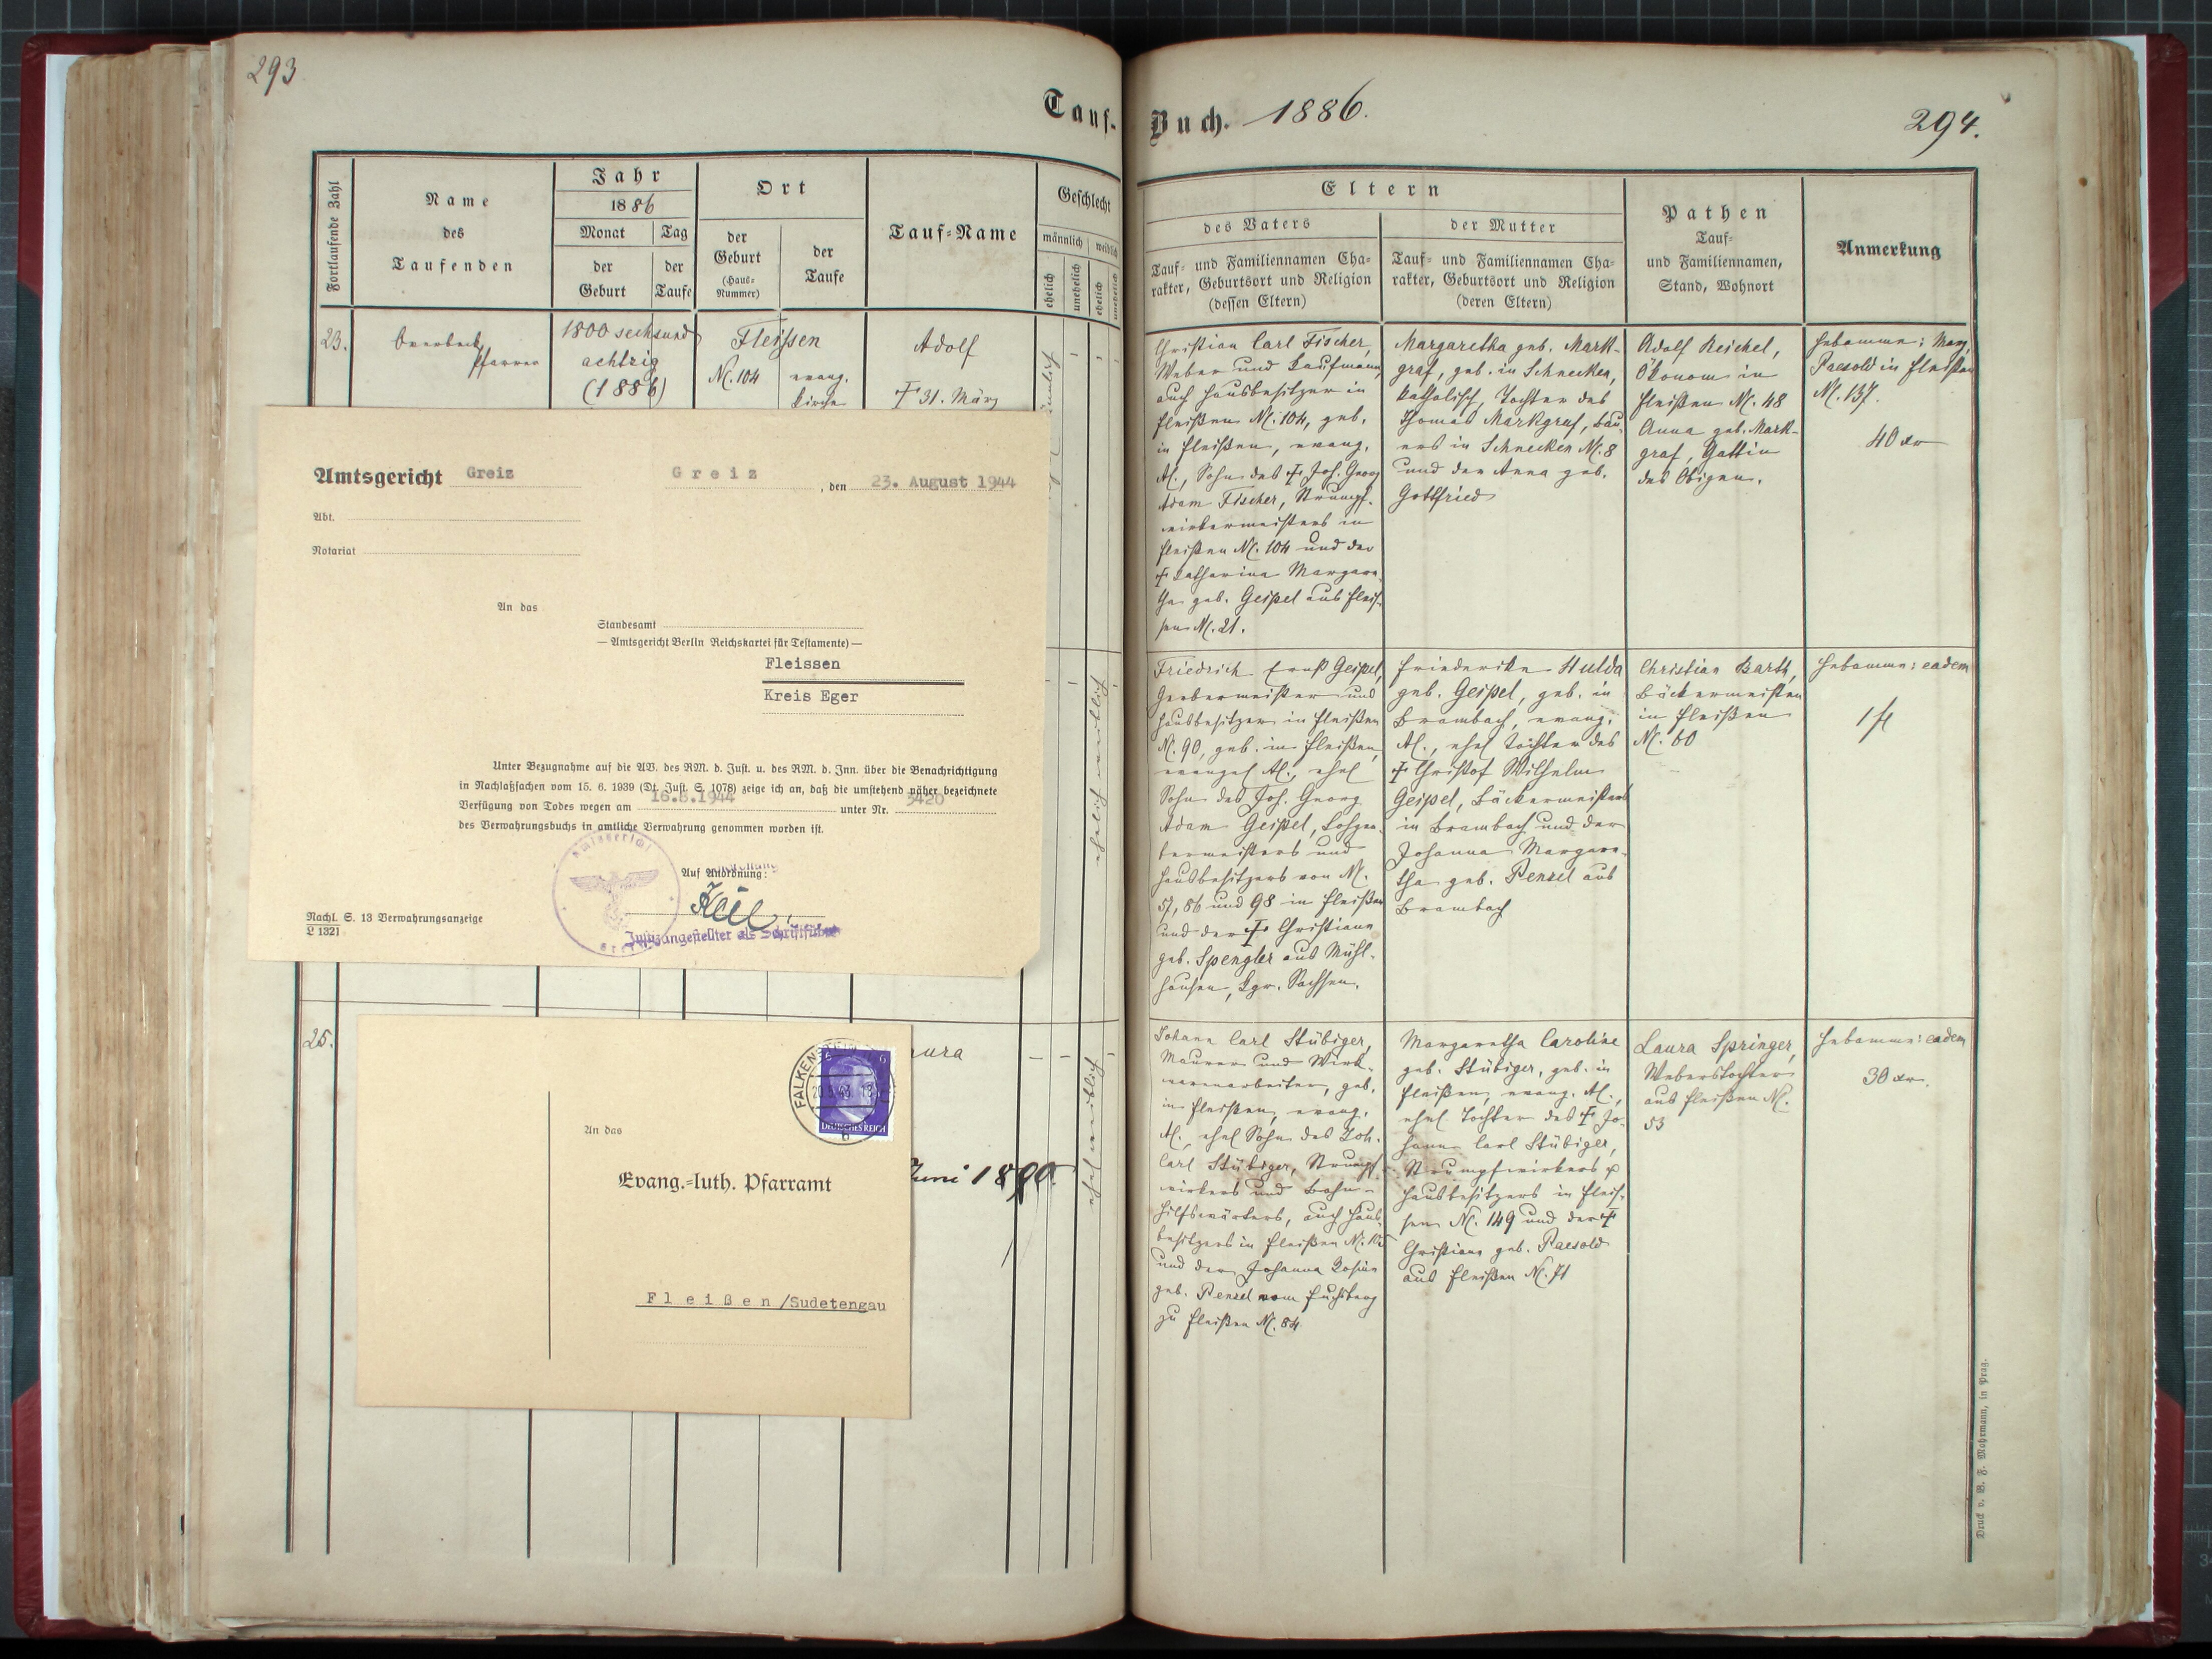 293
Tauf-
Fortlaufende Zahl
Name
des
Taufenden
Jahr
1886
Monat
Tag
der
Geburt
der
Taufe
Ort
der
Geburt
(Haus-
Nummer)
der
Taufe
Tauf-Name
Geschlecht
männlich
weiblich
ehelich
unehelich
ehelich
unehelich
23.
Overbeck
Pfarrer
1800 sechsund
achtzig
(1886)
Fleißen
N. 104
evang.
Kirche
Adolf
† 31. März
Amtsgericht Greiz
Greiz, den 23. August 1944
Abt.
Notariat
An das
Standesamt
— Amtsgericht Berlin Reichskartei für Testamente) —
Fleissen
Kreis Eger
Unter Bezugnahme auf die AV. des RM. d. Just. u. des RM. d. Inn. über die Benachrichtigung
in Nachlaßsachen vom 15. 6. 1939 (Dt. Just. S. 1078) zeige ich an, daß die umstehend näher bezeichnete
Verfügung von Todes wegen am 16.8.1944 unter Nr. 5420
des Verwahrungsbuchs in amtliche Verwahrung genommen worden ist.
Amtsgericht
Greiz
Auf Anordnung:
Justizangestellter als Schriftführer
Nachl. S. 13 Verwahrungsanzeige
L 1321
25.
aura
Juni 1890.
FALKENSTEIN
DEUTSCHES REICH
6
An das
Evang.-luth. Pfarramt
Fleißen/Sudetengau
ehelich weiblich
ehel. weiblich
Buch. 1886.
294.
Eltern
des Vaters
der Mutter
Tauf- und Familiennamen Cha-
rakter, Geburtsort und Religion
(dessen Eltern)
Tauf- und Familiennamen Cha-
rakter, Geburtsort und Religion
(deren Eltern)
Pathen
Tauf-
und Familiennamen,
Stand, Wohnort
Anmerkung
Christian Carl Fischer,
Weber und Kaufmann,
auch Hausbesitzer in
Fleißen N. 104, geb.
in Fleißen, evang.
AC., Sohn des † Joh. Georg
Adam Fischer, Strumpf-
wirkermeisters in
Fleißen N. 104 und der
† Katharina Margare-
tha geb. Geipel aus Fleis-
sen N. 21.
Margaretha geb. Mark-
graf, geb. in Schnecken,
katholisch, Tochter des
Thomas Markgraf, Bau-
ers in Schnecken N. 8
und der Anna geb.
Gottfried
Adolf Reichel,
Ökonom in
Fleißen N. 48
Anna geb. Mark-
graf, Gattin
des Obigen.
Hebamme: Marg.
Paesold in Fleißen
N. 137.
40 xr
Friedrich Ernst Geipel,
Gerbermeister und
Hausbesitzer in Fleißen
N. 90, geb. in Fleißen,
evangel. AC., ehel.
Sohn des Joh. Georg
Adam Geipel, Lohger-
bermeisters und
Hausbesitzers von N.
57, 86 und 98 in Fleißen
und der † Christiana
geb. Spengler aus Mühl-
hausen, Kgr. Sachsen.
Friederike Hulda
geb. Geipel, geb. in
Brambach, evang.
AC., ehel. Tochter des
† Christof Wilhelm
Geipel, Bäckermeisters
in Brambach und der
Johanna Margare-
tha geb. Penzel aus
Brambach
Christian Barth,
Bäckermeister
in Fleißen
N. 60
Hebamme: eadem
1 fl
Johann Carl Stübiger,
Maurer und Wirk-
warenarbeiter, geb.
in Fleißen, evang.
AC., ehel. Sohn des Joh.
Carl Stübiger, Strumpf-
wirkers und Bahn-
hilfswärters, auch Haus-
besitzers in Fleißen N.
und der Johanna
geb. Penzel vom Fuchsberg
zu Fleißen N. 84
Margaretha Caroline
geb. Stübiger, geb. in
Fleißen, evang. AC.,
ehel. Tochter des † Jo-
hann Carl Stübiger,
Strumpfwirkers &
Hausbesitzers in Fleis-
sen N. 149 und der †
Christiana geb. Paesold
aus Fleißen N. 71
Laura Springer,
Weberstochter
aus Fleißen N.
53
Hebamme: eadem
30 xr.
Druck v. G. F. Mohrmann, in Prag.